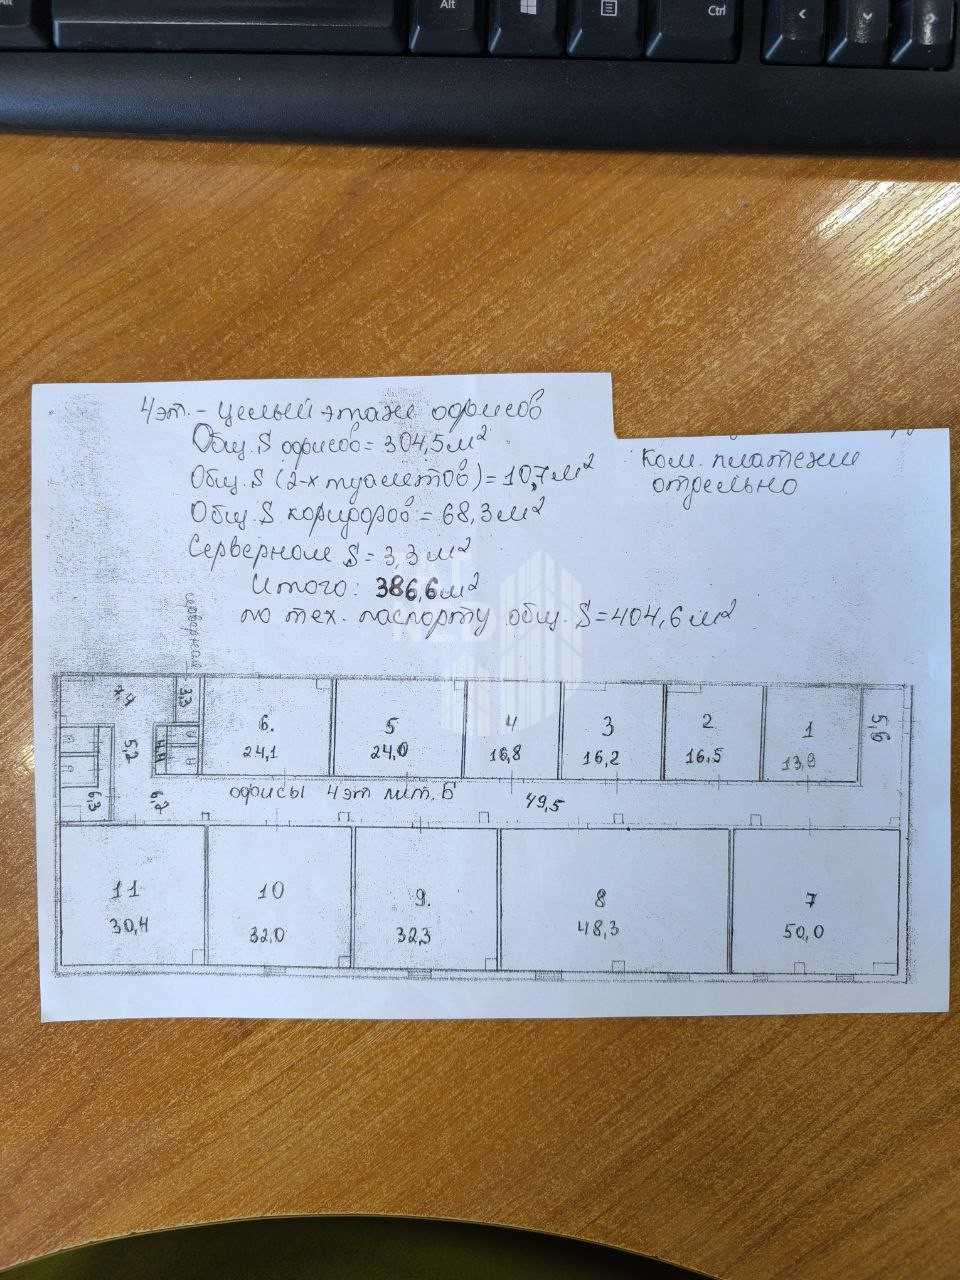 Alt
Alt
Ctrl
4эт. - целый этаж офисов
Общ. S офисов = 304,5 м²
Общ. S (2-х туалетов) = 10,7 м²
Общ. S коридоров = 68,3 м²
Серверном S = 3,3 м²
Итого: 386,6 м²
по тех. паспорту общ. S = 404,6 м²
ком. платежи
отдельно
серверная
7,4
3,3
6.
24,1
5
24,0
4
16,8
3
16,2
2
16,5
1
13,9
5,6
5,2
4,4
6,3
6,2
офисы 4эт лит. Б
49,5
11
30,4
10
32,0
9.
32,3
8
48,3
7
50,0